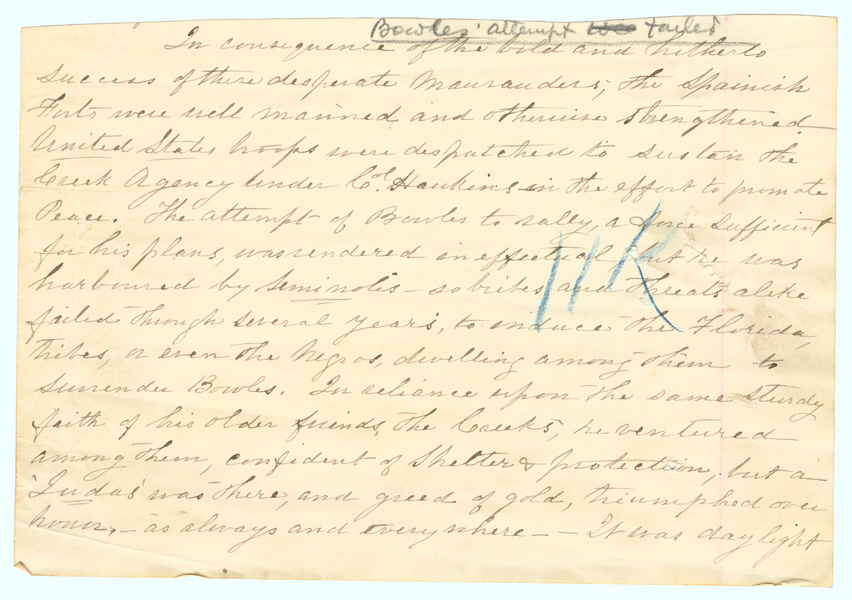 Bowles' attempt was failed
In consequence of the bold and hitherto
success of these desperate Maurauders, the Spainish
Forts were well manned and otherwise strengthened.
United States troops were despatched to sustain the
Creek Agency under Col Hawkins in the effort to promote
Peace. The attempt of Bowles to rally, a force sufficient
for his plans, was rendered ineffectual but he was
harboured by Seminolis – so bribes and threats alike
failed through several years, to induce the Florida,
tribes, or even the Negros, dwelling among them to
surrender Bowles. In reliance upon the same sturdy
faith of his older friends, the Creeks, he ventured
among them, confident of shelter & protection, but a
'Judas' was there, and greed of gold, triumphed over
honor, – as always and everywhere – – It was daylight